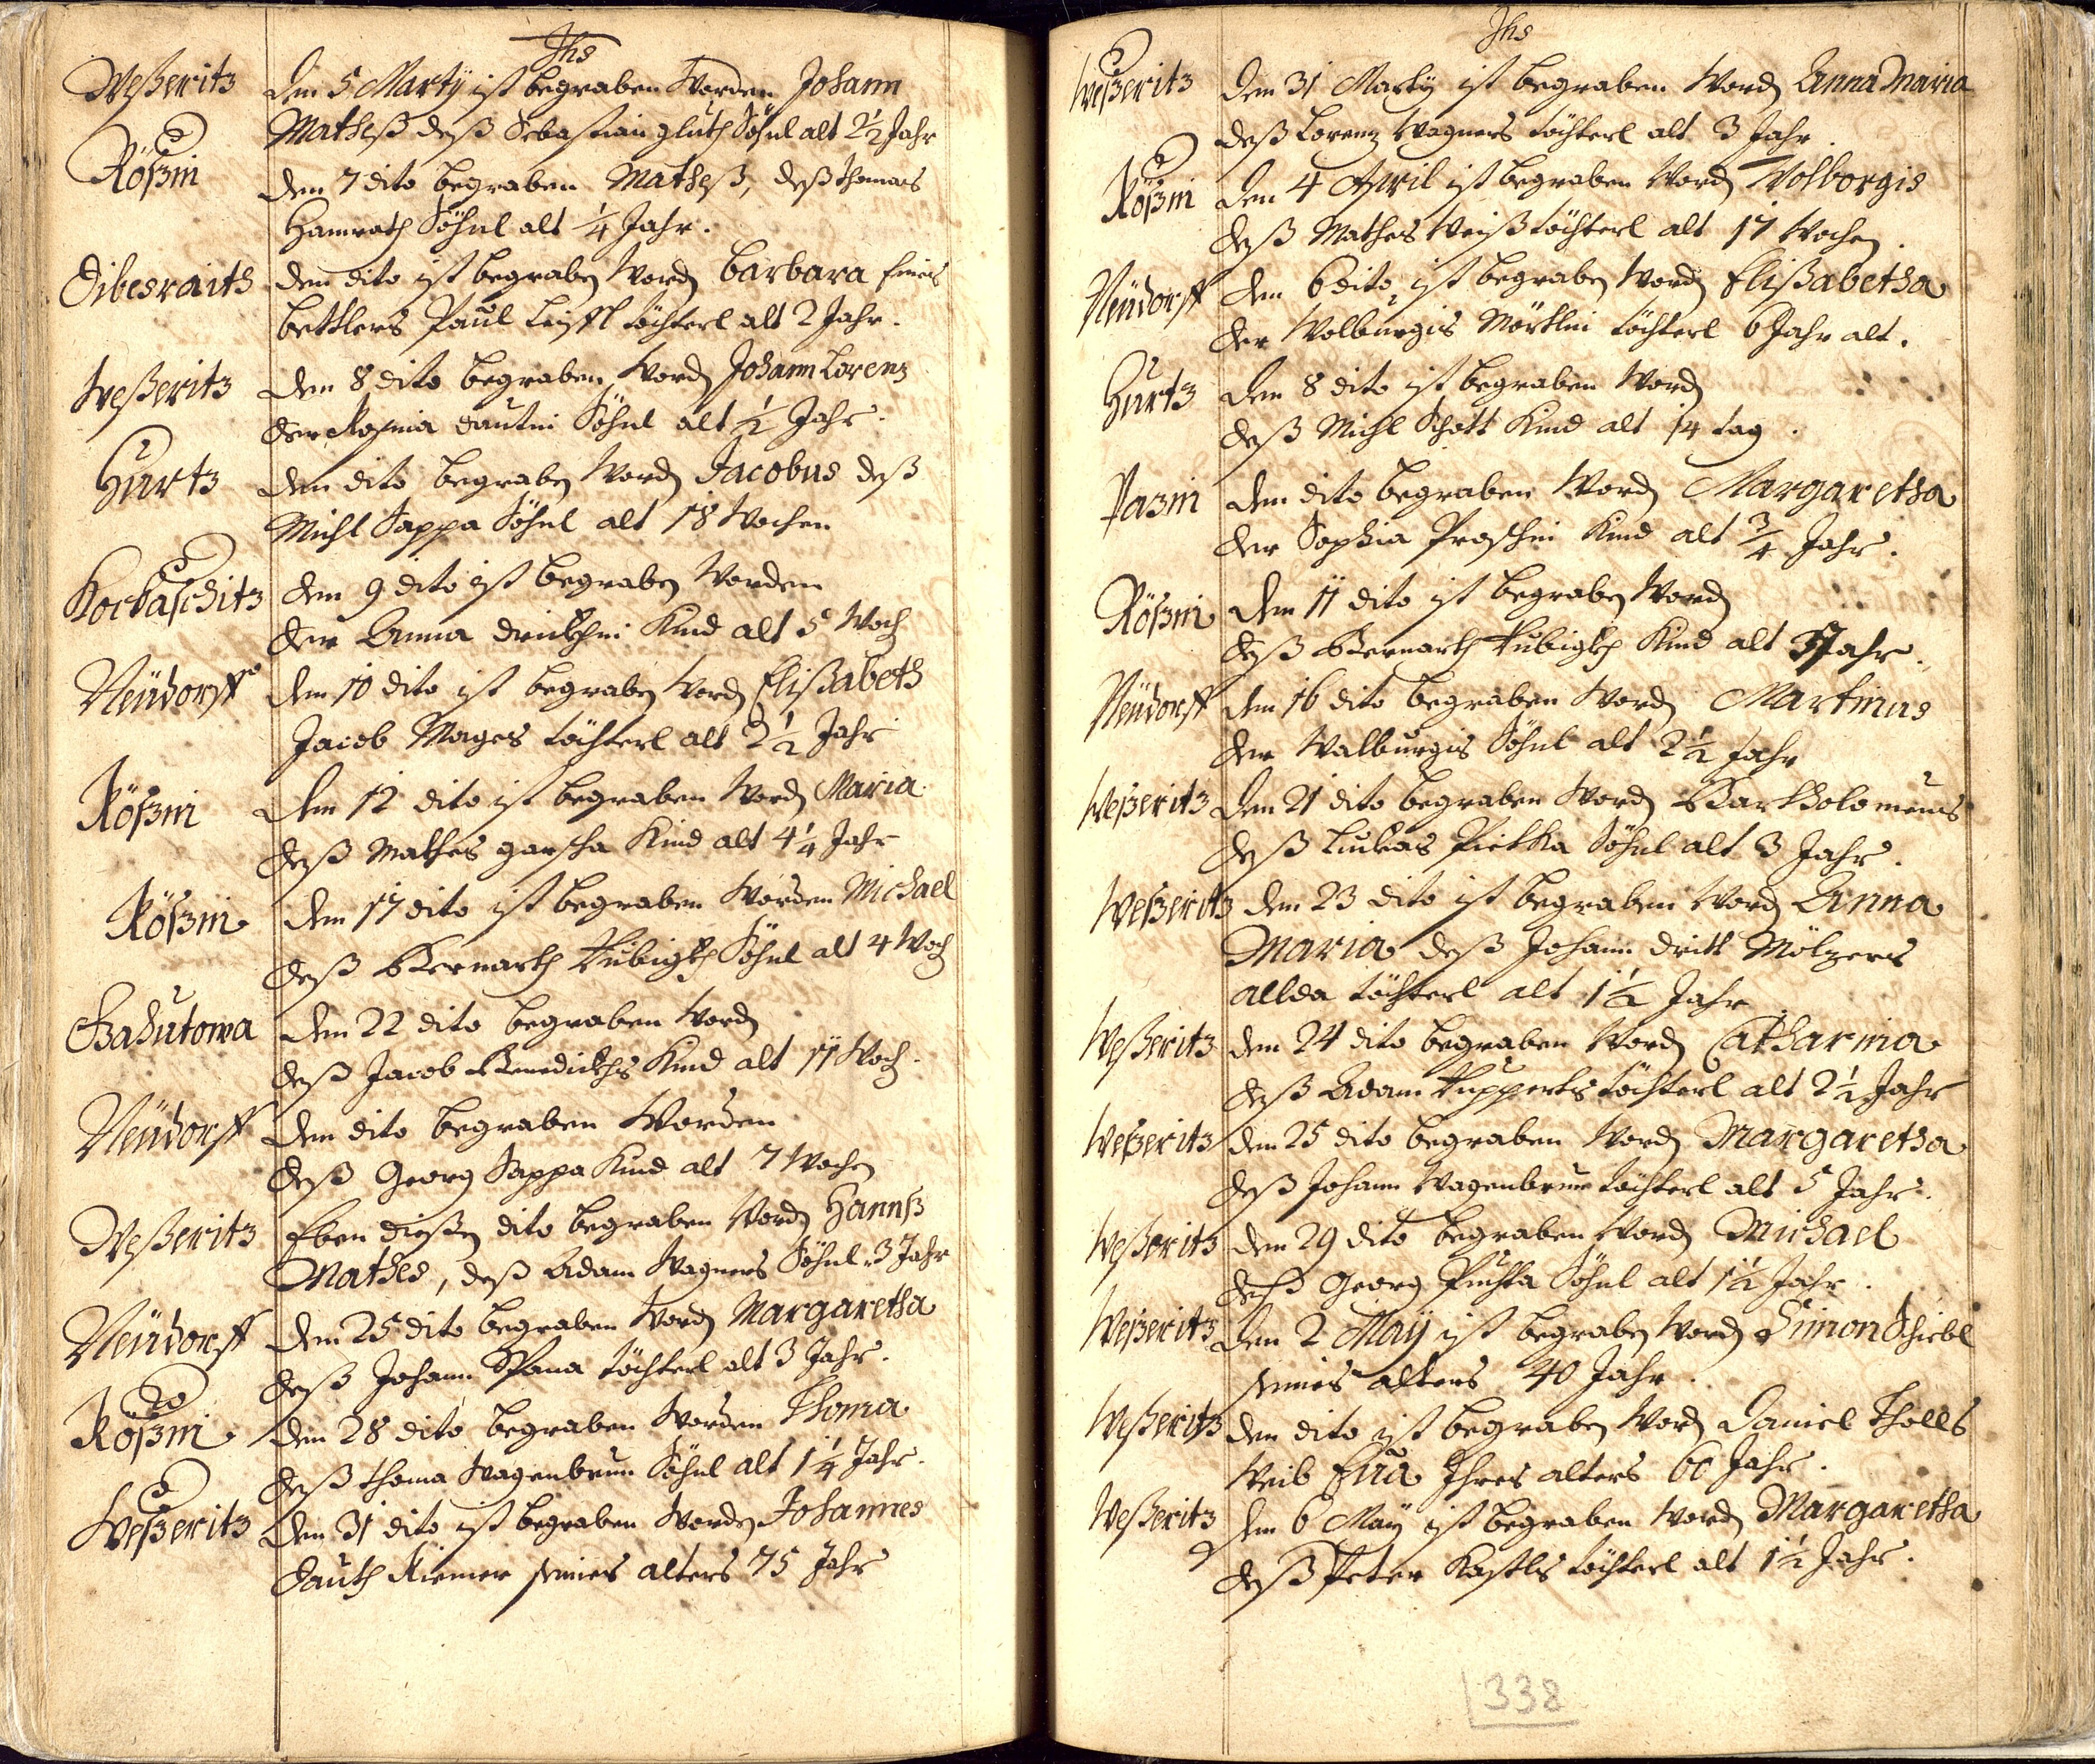 Ihs
Weßeritz Den 5 Martÿ ist begraben Worden Johann
Matheß deß Sebastian gluth Söhnl alt 2½ Jahr
Rößin den 7 dito begraben Matheß, deß thomas
Hamrath Söhnl alt ¼ Jahr.
den dito ist begraben Word Barbara eines
bettlers Paul töchterl alt 2 Jahr.
Weßeritz den 8 dito begraben Word Johann Lorenz
der Rosina Söhnl alt ½ Jahr.
Hurtz den dito begraben Word Jacobus deß
Michl Sappa Söhnl alt 18 Wochen
Kocbaschitz den 9 dito ist begraben Worden
der Anna Kind alt 5 Woch
Neüdorff den 10 dito ist begraben Word Elißabeth
Jacob Mages töchterl alt 2½ Jahr
Rößin den 12 dito ist begraben Word Maria
deß Mathes garscha Kind alt 4¼ Jahr
Rößin den 17 dito ist begraben Worden Michael
deß Bernarth Söhnl alt 4 Woch
den 22 dito begraben Word
deß Jacob Benedickts Kind alt 11 Woch.
Neüdorff den dito begraben Worden
deß Georg Sappa Kind alt 7 Wochen
Weßeritz Eben dießen dito begraben Word Hannß
Mathes, deß Adam Wagners Söhnl 3 Jahr
Neüdorff den 25 dito begraben Word Margaretha
deß Johann Spana töchterl alt 3 Jahr.
Rößin den 28 dito begraben Worden Thoma
deß thoma Wagenbrun Söhnl alt 1¼ Jahr.
Weßeritz den 31 dito ist begraben Worden Johannes
Dauth Riemer seines alters 75 Jahr
Ihs
Weßeritz Den 31 Martÿ ist begraben Word Anna Maria
deß Lorenz Wagners töchterl alt 3 Jahr.
Rößin Den 4 April ist begraben Word Wolborgis
deß Mathes Weiß töchterl alt 17 Wochen.
Neüdorff den 6 dito ist begraben Word Elißabetha
der Wolburgis Mörtlin töchterl 6 Jahr alt.
Hurtz den 8 dito ist begraben Word
deß Michl Schott Kind alt 14 tag.
Pazin den dito begraben Word Margaretha
der Sophia Kind alt ¾ Jahr.
Rößin den 11 dito ist begraben Word
deß Bernarth Kind alt Jahr.
Neüdorff den 16 dito begraben Word Martinus
der Walburgis Söhnl alt 2½ Jahr
Weßeritz Den 21 dito begraben Word Bartholomeus
deß Lucas Pietka Söhnl alt 3 Jahr.
Weßeritz den 23 dito ist begraben Word Anna
Maria deß Johann Mölzers
allda töchterl alt 1½ Jahr
Weßeritz den 24 dito begraben Word Catharina
deß Adam Rupperts töchterl alt 2½ Jahr
Weßeritz den 25 dito begraben Word Margaretha
deß Johann Wagenbrun töchterl alt 5 Jahr.
Weßeritz den 29 dito begraben Word Michael
deß Georg Puchta Söhnl alt 1½ Jahr.
Weßeritz Den 2 Maÿ ist begraben Word Simon Schiebl
seines alters 40 Jahr.
Weßeritz den dito ist begraben Word Daniel Tholls
Weib Eua Ihres alters 60 Jahr.
Weßeritz den 6 Maÿ ist begraben Word Margaretha
deß Peter Kastls töchterl alt 1½ Jahr.
338